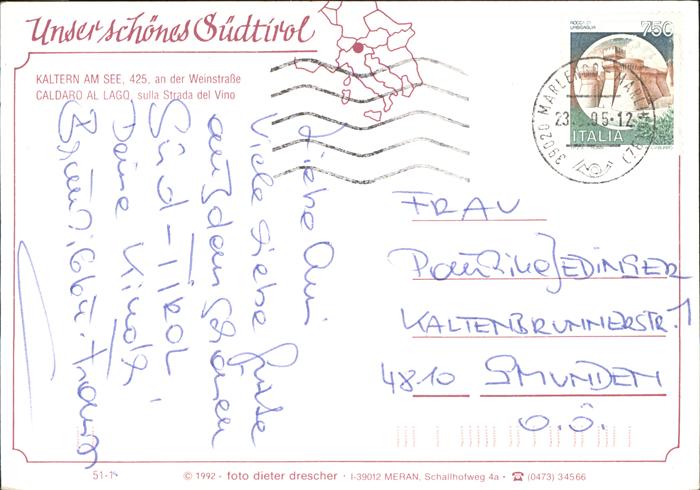 Unser schönes Südtirol
KALTERN AM SEE, 425, an der Weinstraße
CALDARO AL LAGO, sulla Strada del Vino
ROCCA DI
URBISAGLIA
750
ITALIA
39020 MARLENGO
23. .95-12
Liebe Omi
Viele liebe Grüße
aus dem schönen
Süd-Tirol
Deine
FRAU
JEDINGER
KALTENBRUNNERSTR. 1
4810 GMUNDEN
O.Ö.
51-1
© 1992 - foto dieter drescher - I-39012 MERAN, Schaffhofweg 4a - ☎ (0473) 34566